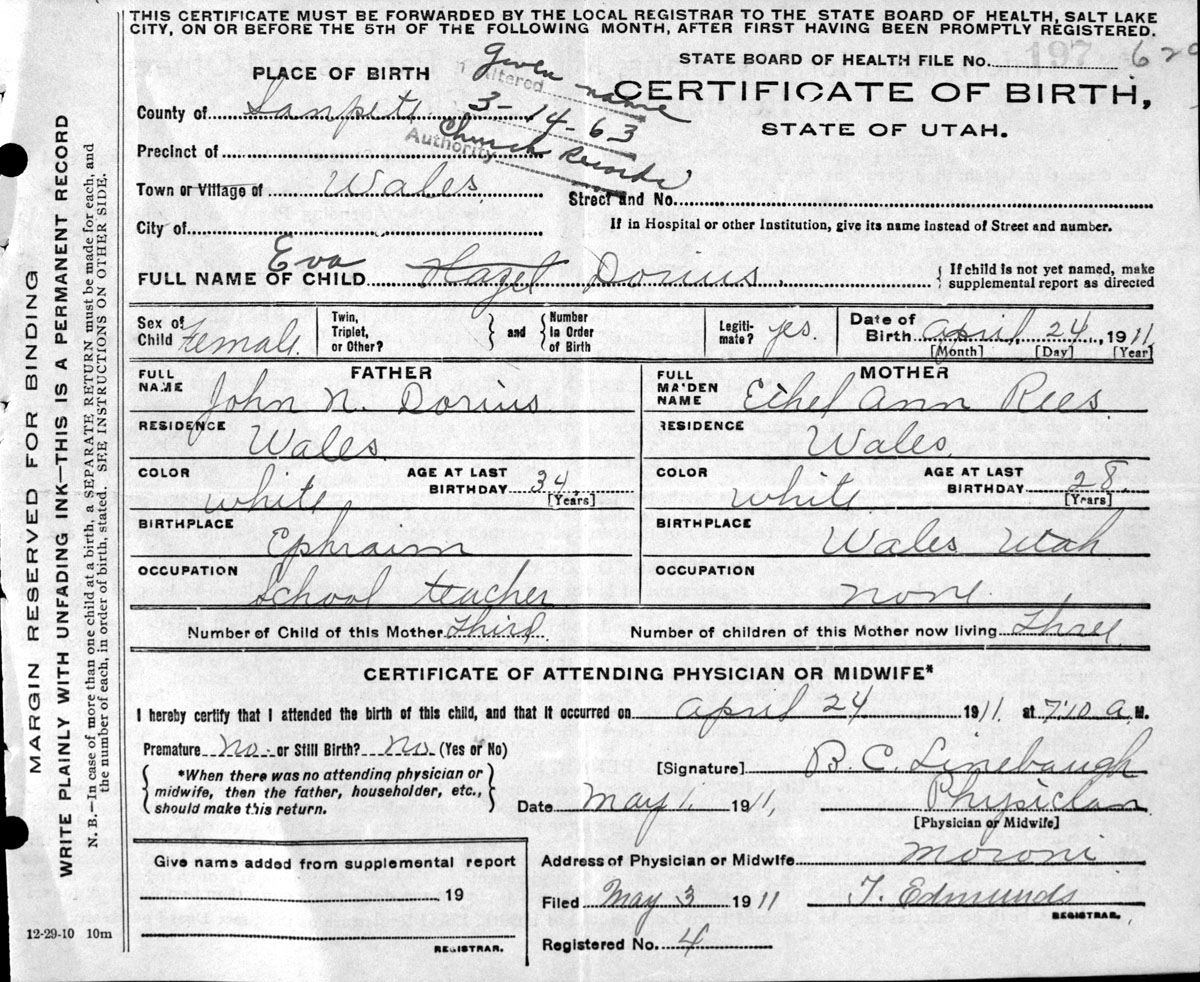 THIS CERTIFICATE MUST BE FORWARDED BY THE LOCAL REGISTRAR TO THE STATE BOARD OF HEALTH, SALT LAKE
CITY, ON OR BEFORE THE 5TH OF THE FOLLOWING MONTH, AFTER FIRST HAVING BEEN PROMPTLY REGISTERED.
STATE BOARD OF HEALTH FILE No. 197
PLACE OF BIRTH
Given name
Altered 3-14-63
Authority Church Records
CERTIFICATE OF BIRTH,
STATE OF UTAH.
County of Sanpete
Precinct of
Town or Village of Wales
Street and No.
City of
If in Hospital or other Institution, give its name instead of Street and number.
Eva
FULL NAME OF CHILD Hazel Dorius
{ If child is not yet named, make
supplemental report as directed
Sex of Child Female
Twin, Triplet, or Other? } and { Number in Order of Birth
Legiti-mate? yes
Date of Birth April 24, 1911
[Month] [Day] [Year]
FATHER
FULL NAME John N. Dorius
RESIDENCE Wales
COLOR white
AGE AT LAST BIRTHDAY 34 [Years]
BIRTHPLACE Ephraim
OCCUPATION School teacher
MOTHER
FULL MAIDEN NAME Ethel Ann Rees
RESIDENCE Wales
COLOR white
AGE AT LAST BIRTHDAY 28 [Years]
BIRTHPLACE Wales Utah
OCCUPATION none
Number of Child of this Mother Third
Number of children of this Mother now living Three
CERTIFICATE OF ATTENDING PHYSICIAN OR MIDWIFE*
I hereby certify that I attended the birth of this child, and that it occurred on April 24 1911 at 7:10 a M.
Premature No or Still Birth? No (Yes or No)
*When there was no attending physician or
midwife, then the father, householder, etc.,
should make this return.
[Signature] B. C. Linebaugh
Date May 1, 1911, Physician
[Physician or Midwife]
Give name added from supplemental report
, 19
REGISTRAR.
Address of Physician or Midwife Moroni
Filed May 3 1911 T. Edmunds
REGISTRAR.
Registered No. 4
12-29-10 10m
MARGIN RESERVED FOR BINDING
WRITE PLAINLY WITH UNFADING INK—THIS IS A PERMANENT RECORD
N. B.—In case of more than one child at a birth, a SEPARATE RETURN must be made for each, and
the number of each, in order of birth, stated. SEE INSTRUCTIONS ON OTHER SIDE.